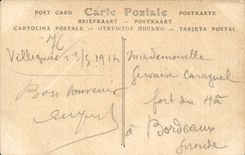 POST CARD Carte Postale POSTKARTE
BRIEFKAART - POSTKAART
CARTOLINA POSTALE - ОТКРЫТОЕ ПИСЬМО - TARJETA POSTAL
Villequier 23/5 1914
Bon souvenir
Mademoiselle
fort du Hâ
à Bordeaux
Gironde